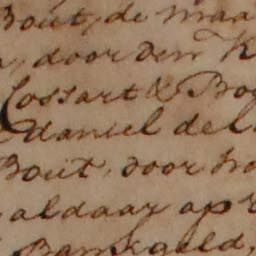 Bout, de maa
door den K
Cossart & Bo
daniel del
Bout, door
aldaar op
Bankgeld,